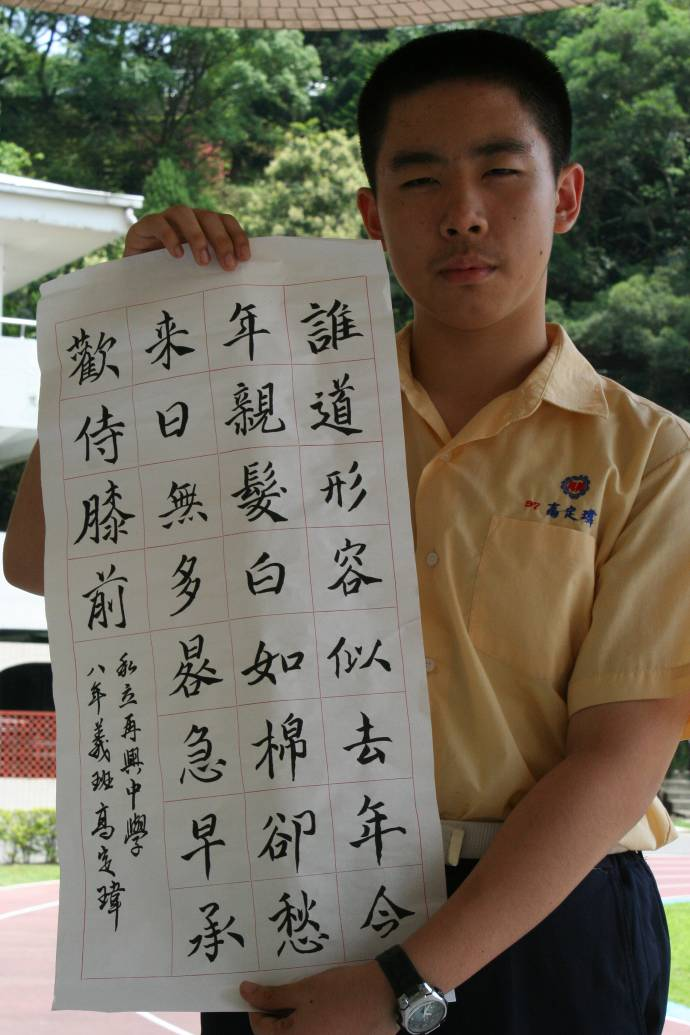 誰道形容似去年今
年親髮白如棉卻愁
来日無多晷急早承
歡侍膝前
私立再興中學
八年義班高定瑋
97 高定瑋